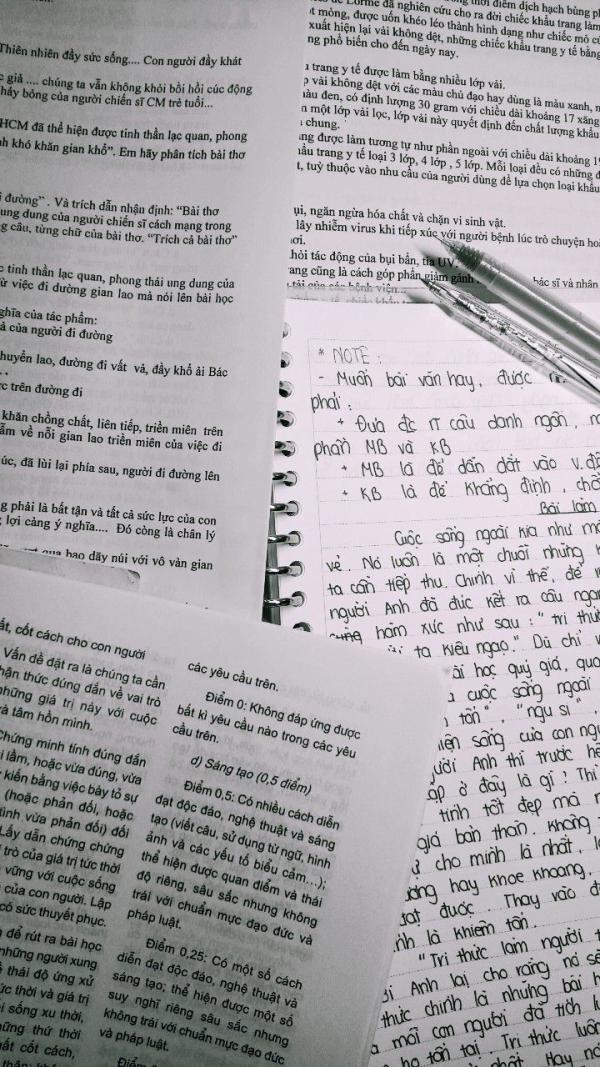 Thiên nhiên đầy sức sống.... Con người đầy khát
giả .... chúng ta vẫn không khỏi bồi hồi cúc động
bóng của người chiến sĩ CM trẻ tuổi...
HCM đã thể hiện được tinh thần lạc quan, phong
khó khăn gian khổ”. Em hãy phân tích bài thơ
đường” . Và trích dẫn nhận định: “Bài thơ
ung dung của người chiến sĩ cách mạng trong
câu, từng chữ của bài thơ. “Trích cả bài thơ”
tinh thần lạc quan, phong thái ung dung của
việc đi dường gian lao mà nói lên bài học
nghĩa của tác phẩm:
của người đi đường
chuyển lao, đường đi vất vả, đầy khổ ải Bác
trên đường đi
khăn chồng chất, liên tiếp, triền miên trên
về nỗi gian lao triền miên của việc đi
đã lùi lại phía sau, người đi đường lên
phải là bất tận và tất cả sức lực của con
lợi càng ý nghĩa.... Đó còng là chân lý
qua bao dãy núi với vô vàn gian
đã nghiên cứu cho ra đời chiếc khẩu trang làm
mỏng, được uốn khéo léo thành hình dạng như chiếc mỏ
xuất hiện lại vải không dệt, những chiếc khẩu trang y tế bằng
phổ biến cho đến ngày nay.
trang y tế được làm bằng nhiều lớp vải.
vải không dệt với các màu chủ đạo hay dùng là màu xanh,
màu đen, có định lượng 30 gram với chiều dài khoảng 17 xăng
một lớp vải lọc, lớp vải này quyết định đến chất lượng khẩu
chung.
được làm tương tự như phần ngoài với chiều dài khoảng
trang y tế loại 3 lớp, 4 lớp , 5 lớp. Mỗi loại đều có những
tuỳ thuộc vào nhu cầu của người dùng để lựa chọn loại khẩu
bụi, ngăn ngừa hóa chất và chặn vi sinh vật.
lây nhiễm virus khi tiếp xúc với người bệnh lúc trò chuyện
khỏi tác động của bụi bẩn, tia UV
cũng là cách góp phần giảm gánh bác sĩ và nhân
của các bệnh viện...
* NOTE :
- Muốn bài văn hay, được
phải :
+ Đưa đc câu danh ngôn,
phần MB và KB
+ MB là để dẫn dắt vào
+ KB là để khẳng định ,
Bài làm
Cuộc sống ngoài kia như
vẻ. Nó luôn là một chuỗi những
ta cần tiếp thu. Chính vì thế, để
người Anh đã đúc kết ra câu
hàm xúc như sau : " tri thức
ta kiêu ngạo." Dù chỉ
học quý giá,
cuộc sống ngoài
tốn" , "ngu si" ,
sống của con
Anh thì trước
ở đây là gì ! Thì
tính tốt đẹp mà
giá bản thân. Không
cho mình là nhất,
hay khoe khoang,
được. Thay vào
là khiêm tốn.
"Tri thức làm người
Anh lại cho rằng nó
thức chính là những bài
mỗi con người đã tích
tồn tại. Tri thức luôn
nhất. Hay
cốt cách cho con người
Vấn dề đặt ra là chúng ta cần
nhận thức đúng dắn về vai trò
những giá trị này với cuộc
và tâm hồn mình.
Chứng minh tính đúng dắn
lầm, hoặc vừa đúng, vừa
kiến bằng việc bày tỏ sự
(hoặc phản đối, hoặc
vừa phản đối) đối
Lấy dẫn chứng chứng
trò của giá trị tức thời
vững với cuộc sống
của con người. Lập
có sức thuyết phục.
để rút ra bài học
những người xung
thái độ ứng xử
thời và giá trị
sống xu thời,
những thứ thời
cốt cách,
các yêu cầu trên.
Điểm 0: Không đáp ứng được
bất kì yêu cầu nào trong các yêu
cầu trên.
d) Sáng tạo (0,5 điểm)
Điểm 0,5: Có nhiều cách diễn
đạt độc đáo, nghệ thuật và sáng
tạo (viết câu, sử dụng từ ngữ, hình
ảnh và các yếu tố biểu cảm...);
thể hiện được quan điểm và thái
độ riêng, sâu sắc nhưng không
trái với chuẩn mực đạo đức và
pháp luật.
Điểm 0,25: Có một số cách
diễn đạt độc đáo, nghệ thuật và
sáng tạo; thể hiện được một số
suy nghĩ riêng sâu sắc nhưng
không trái với chuẩn mực đạo đức
và pháp luật.